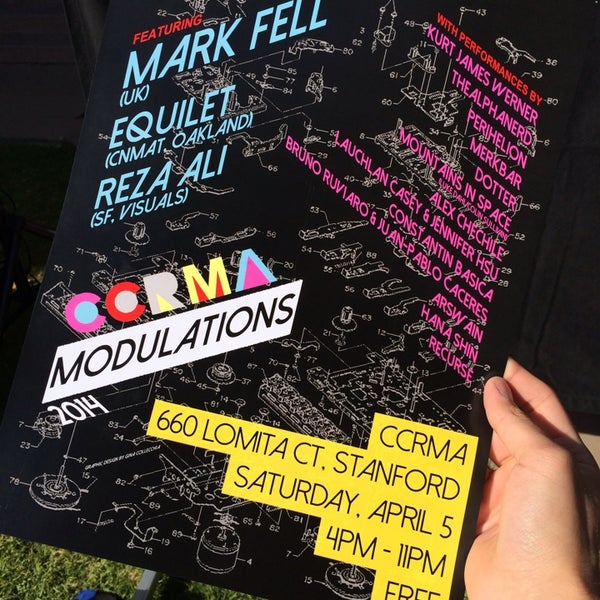 FEATURING
MARK FELL
(UK)
EQUILET
(CNMAT, OAKLAND)
REZA ALI
(SF, VISUALS)
WITH PERFORMANCES BY
KURT JAMES WERNER
THEALPHANERD
PERIHELION
MERKBAR
DOTTER
MOUNTAINS IN SPACE
ALEX CHECHILE
LAUCHLAN CASEY & JENNIFER HSU
CONSTANTIN BASICA
BRUNO RUVIARO & JUAN-PABLO CACERES
ARSWAIN
HANA SHIN
RECURSE
CCRMA
MODULATIONS
2014
GRAPHIC DESIGN BY GINA COLLECCHIA
CCRMA
660 LOMITA CT, STANFORD
SATURDAY, APRIL 5
4PM - 11PM
FREE